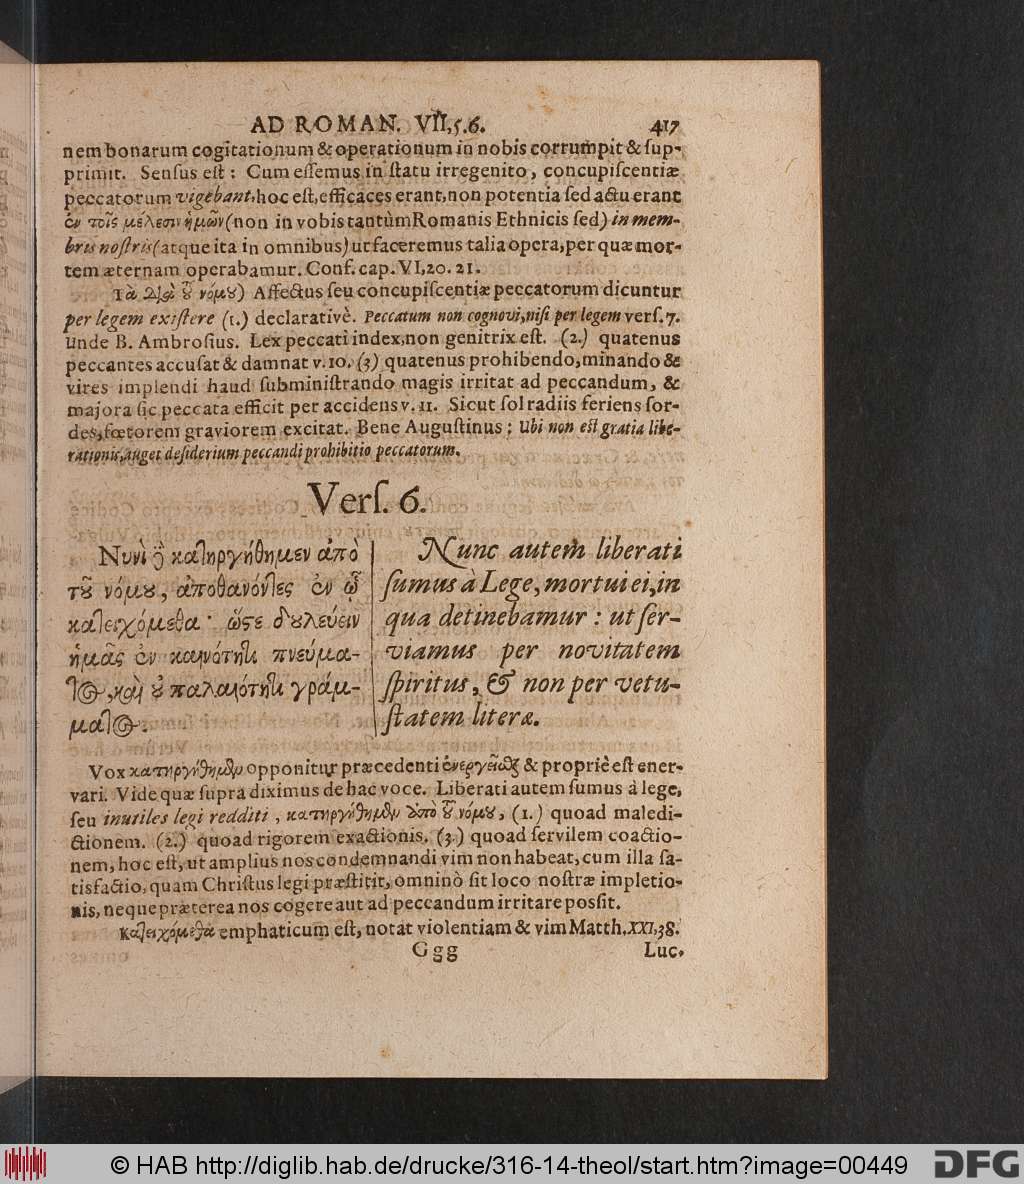 AD ROMAN. VII, 5. 6. 417
nem bonarum cogitationum & operationum in nobis corrumpit & ſup-
primit. Senſus eſt : Cum eſſemus in ſtatu irregenito, concupiſcentiæ
peccatorum vigebant, hoc eſt, efficaces erant, non potentia ſed actu erant
ἐν τοῖς μέλεσιν ἡμῶν (non in vobis tantùm Romanis Ethnicis ſed) in mem-
bris noſtris (atque ita in omnibus) ut faceremus talia opera, per quæ mor-
tem æternam operabamur. Conf. cap. VI, 20. 21.
Τὰ διὰ τοῦ νόμου) Affectus ſeu concupiſcentiæ peccatorum dicuntur
per legem exiſtere (1.) declarativè. Peccatum non cognovi, niſi per legem verſ. 7.
unde B. Ambroſius. Lex peccati index, non genitrix eſt. (2.) quatenus
peccantes accuſat & damnat v. 10. (3) quatenus prohibendo, minando &
vires implendi haud ſubminiſtrando magis irritat ad peccandum, &
majora ſic peccata efficit per accidens v. 11. Sicut ſol radiis feriens ſor-
des, fœtorem graviorem excitat. Bene Auguſtinus : Ubi non eſt gratia libe-
rationis, auget deſiderium peccandi prohibitio peccatorum.
Verſ. 6.
Νυνὶ δὲ κατηργήθημεν ἀπὸ
τοῦ νόμου, ἀποθανόντες ἐν ᾧ
κατειχόμεθα· ὥςε δουλεύειν
ἡμᾶς ἐν καινότητι πνεύμα-
τος, καὶ οὐ παλαιότητι γράμ-
ματος.
Nunc autem liberati
ſumus à Lege, mortui ei, in
qua detinebamur : ut ſer-
viamus per novitatem
ſpiritus, & non per vetu-
ſtatem literæ.
Vox κατηργήθημεν opponitur præcedenti ἐνεργεῖσθαι & propriè eſt ener-
vari. Vide quæ ſupra diximus de hac voce. Liberati autem ſumus à lege,
ſeu inutiles legi redditi, κατηργήθημεν ἀπὸ τοῦ νόμου, (1.) quoad maledi-
ctionem. (2.) quoad rigorem exactionis. (3.) quoad ſervilem coactio-
nem, hoc eſt, ut amplius nos condemnandi vim non habeat, cum illa ſa-
tisfactio, quam Chriſtus legi præſtitit, omninò ſit loco noſtræ impletio-
nis, neque præterea nos cogere aut ad peccandum irritare poſſit.
Κατειχόμεθα emphaticum eſt, notat violentiam & vim Matth. XXI, 38.
Ggg Luc.
© HAB http://diglib.hab.de/drucke/316-14-theol/start.htm?image=00449
DFG